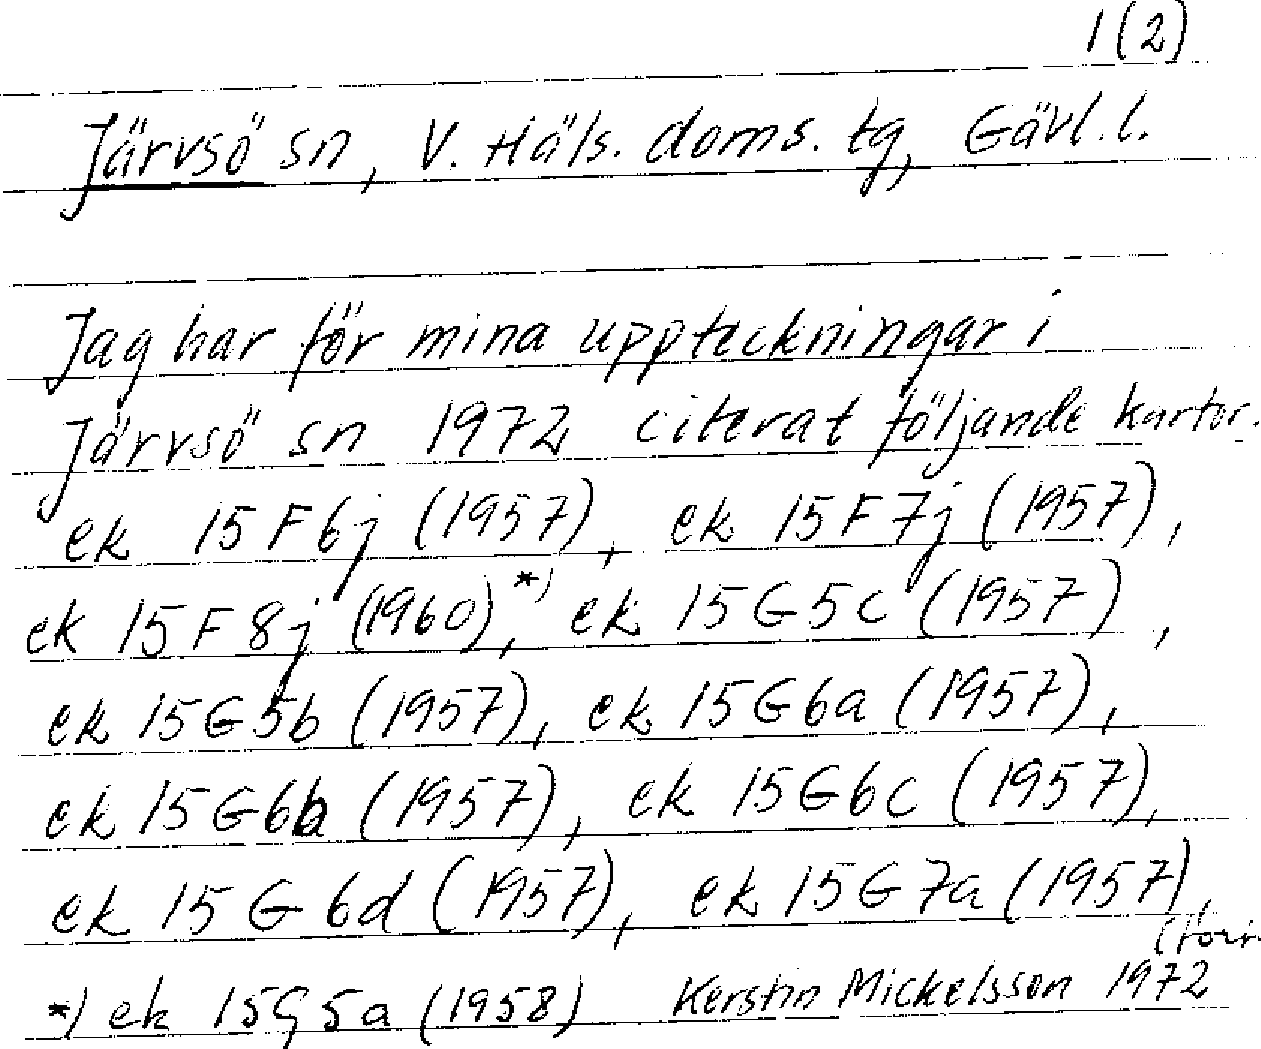 1(2)
Järvsö sn, V. Häls. doms. tg, Gävl. l.
Jag har för mina uppteckningar i
Järvsö sn 1972 citerat följande kartor.
ek 15F6j (1957), ek 15F7j (1957),
ek 15F8j (1960),*) ek 15G5c (1957),
ek 15G5b (1957), ek 15G6a (1957),
ek 15G6b (1957), ek 15G6c (1957),
ek 15G6d (1957), ek 15G7a (1957),
*) ek 15G5a (1958) Kerstin Mickelsson 1972